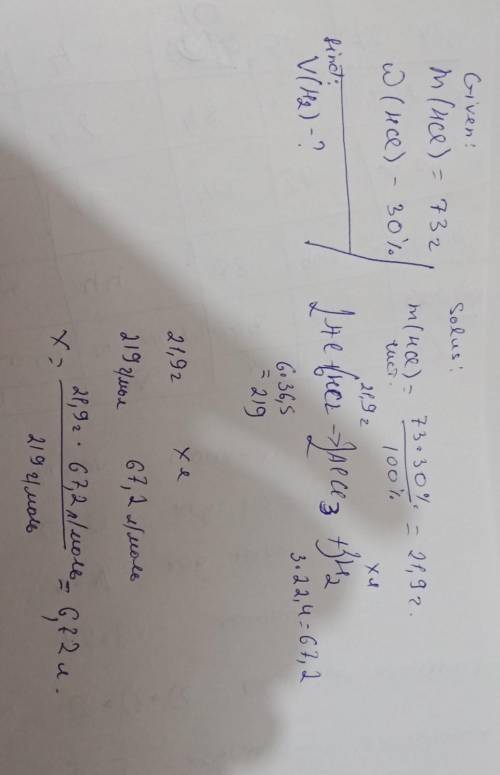 Given:
m(HCl) = 73г
ω(HCl) - 30%
find:
V(H₂) - ?
Solus:
m(HCl) = 73·30% / 100% = 21,9г.
чист.
21,9г хл
2Al + 6HCl → 2AlCl₃ + 3H₂
6·36,5 3·22,4=67,2
= 219
21,9г х л
219г/моль 67,2 л/моль
X = 21,9г · 67,2 л/моль / 219 г/моль = 6,72 л.